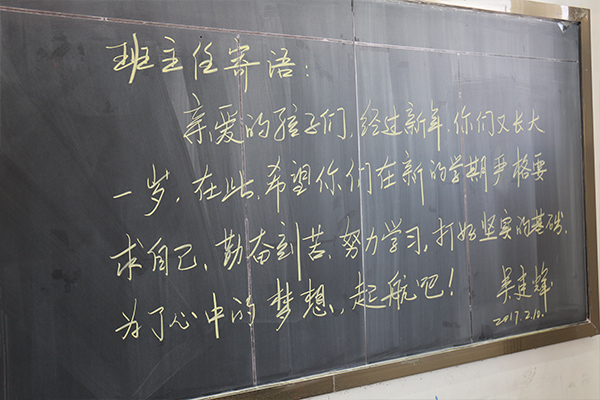 班主任寄语：
亲爱的孩子们，经过新年，你们又长大
一岁，在此，希望你们在新的学期严格要
求自己，勤奋刻苦、努力学习，打好坚实的基础，
为了心中的梦想，起航吧！
吴建辉
2017.2.10.